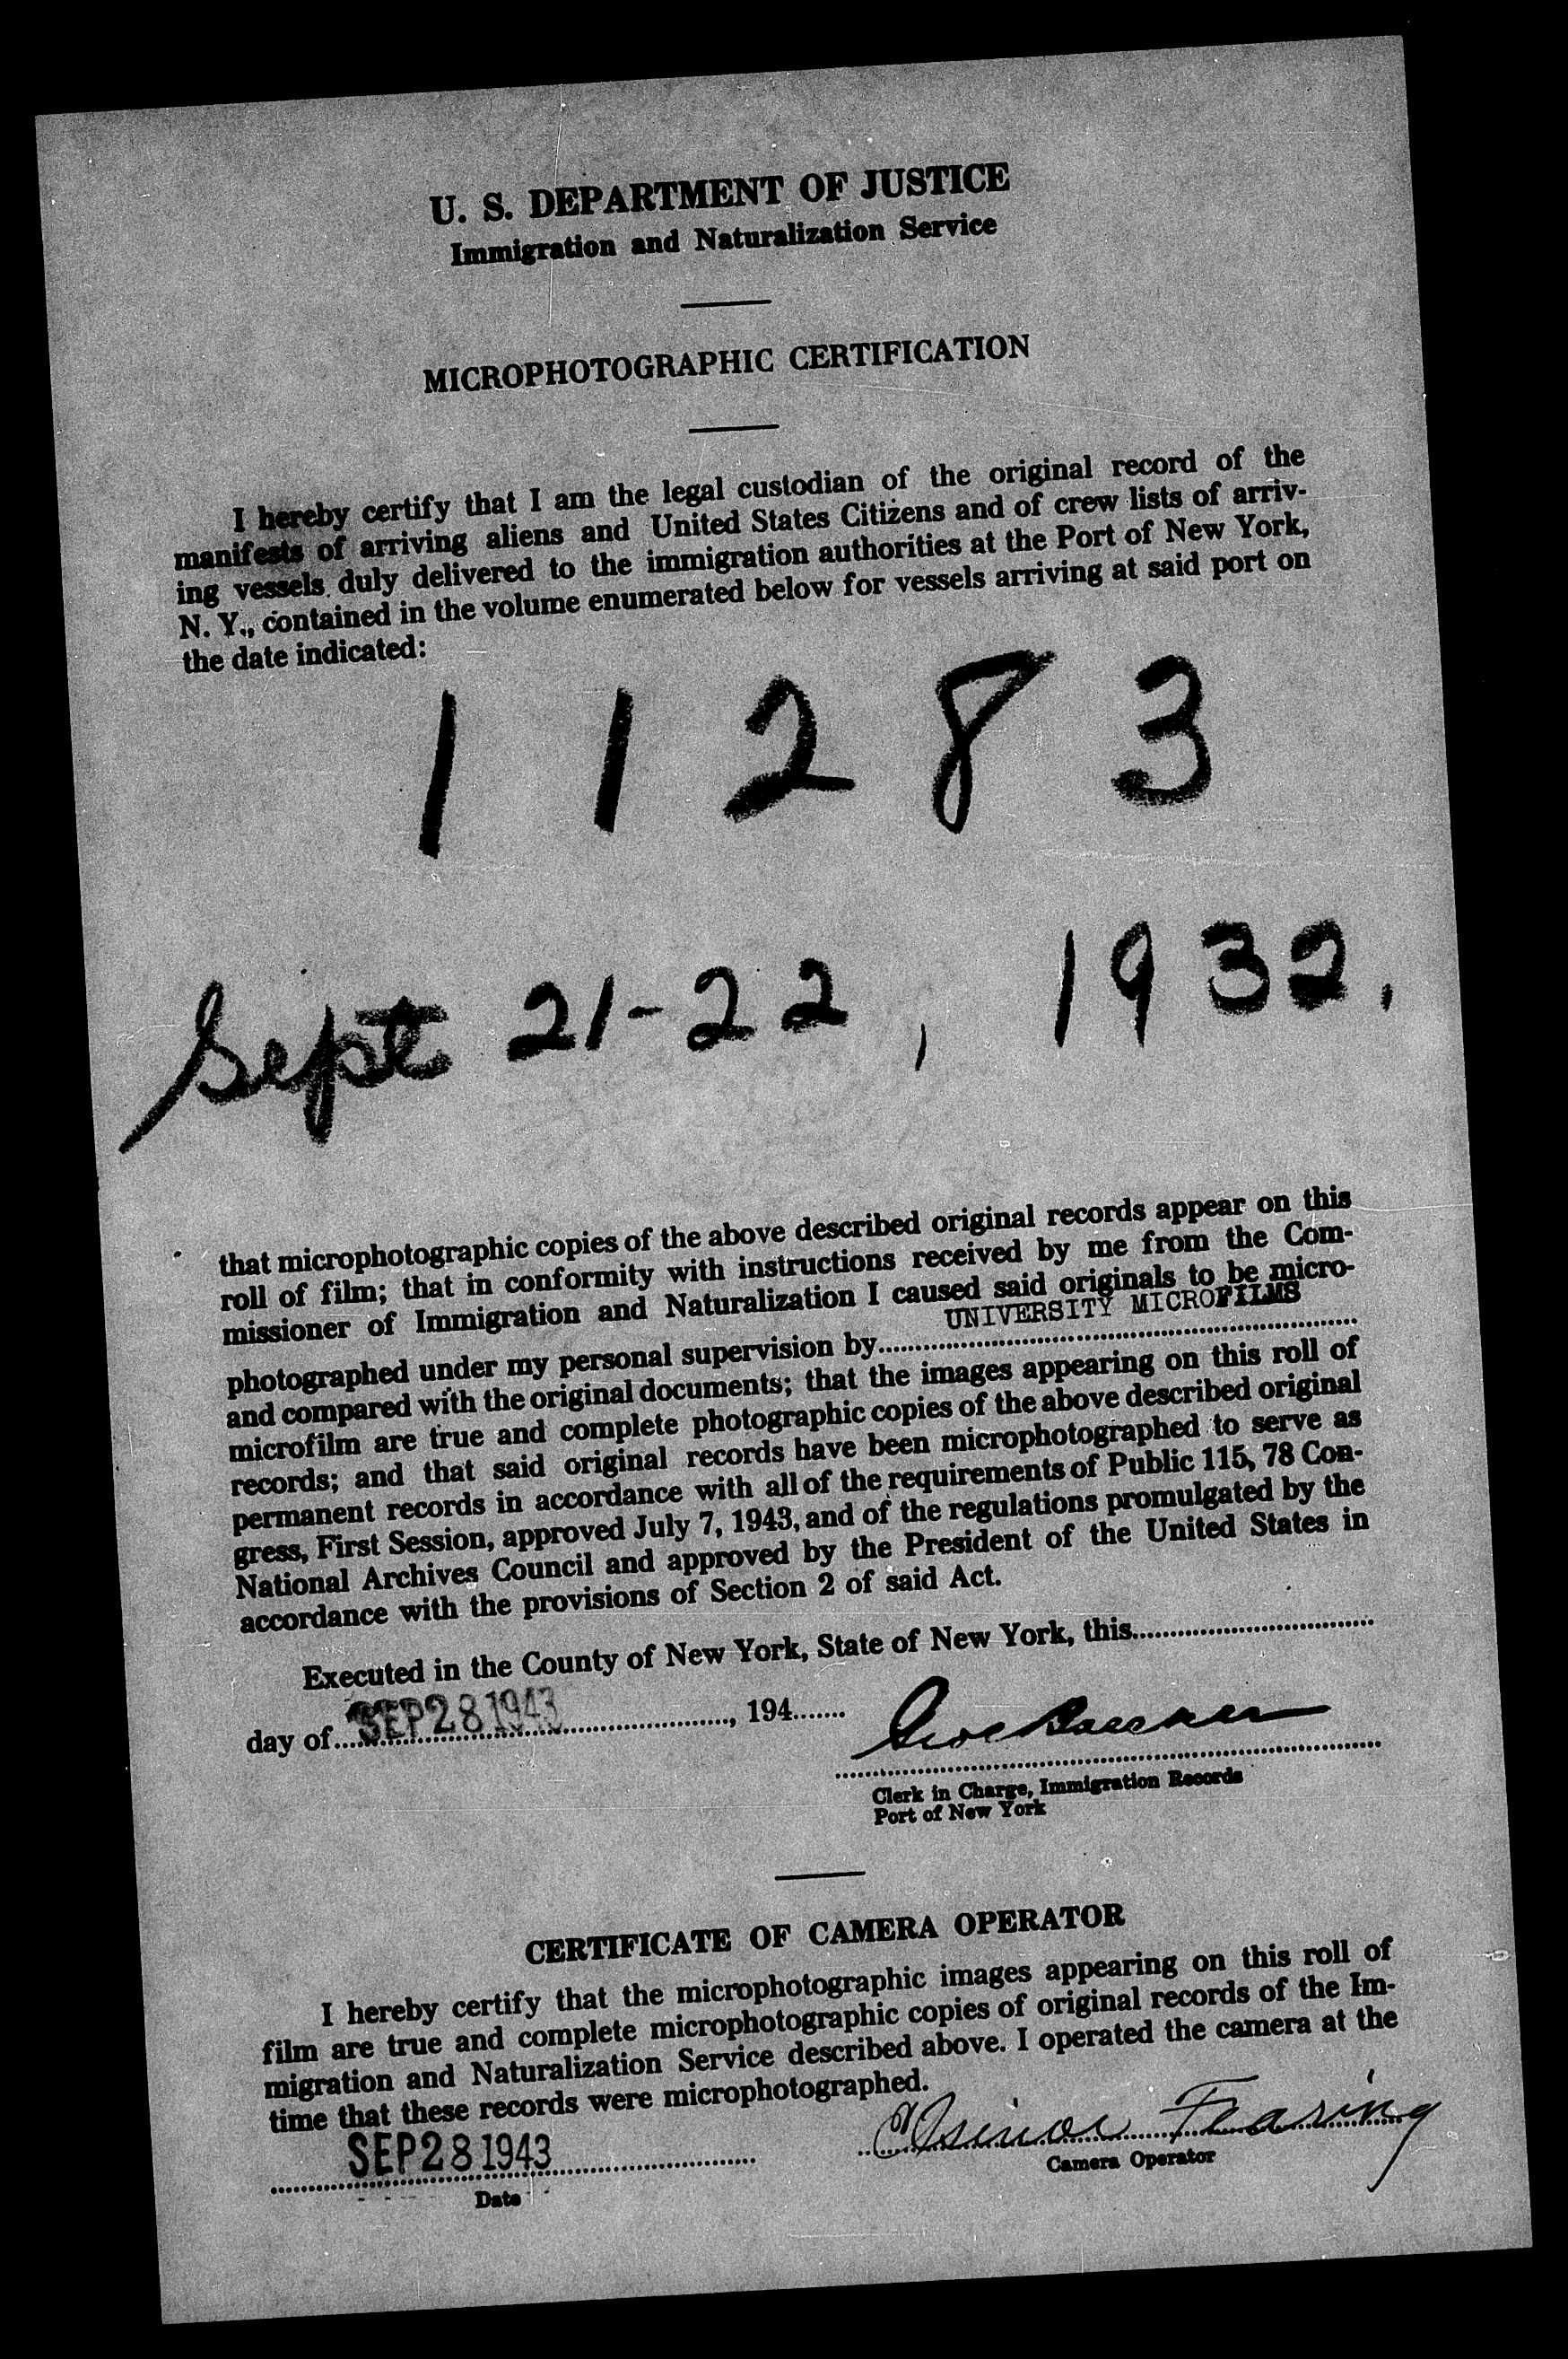 U. S. DEPARTMENT OF JUSTICE
Immigration and Naturalization Service
MICROPHOTOGRAPHIC CERTIFICATION
I hereby certify that I am the legal custodian of the original record of the
manifests of arriving aliens and United States Citizens and of crew lists of arriv-
ing vessels duly delivered to the immigration authorities at the Port of New York,
N. Y., contained in the volume enumerated below for vessels arriving at said port on
the date indicated:
1 1 2 8 3
Sept 21-22, 1932.
that microphotographic copies of the above described original records appear on this
roll of film; that in conformity with instructions received by me from the Com-
missioner of Immigration and Naturalization I caused said originals to be micro-
UNIVERSITY MICROFILMS
photographed under my personal supervision by
and compared with the original documents; that the images appearing on this roll of
microfilm are true and complete photographic copies of the above described original
records; and that said original records have been microphotographed to serve as
permanent records in accordance with all of the requirements of Public 115, 78 Con-
gress, First Session, approved July 7, 1943, and of the regulations promulgated by the
National Archives Council and approved by the President of the United States in
accordance with the provisions of Section 2 of said Act.
Executed in the County of New York, State of New York, this
day of SEP 28 1943, 194
Clerk in Charge, Immigration Records
Port of New York
CERTIFICATE OF CAMERA OPERATOR
I hereby certify that the microphotographic images appearing on this roll of
film are true and complete microphotographic copies of original records of the Im-
migration and Naturalization Service described above. I operated the camera at the
time that these records were microphotographed.
Fearing
SEP 28 1943
Camera Operator
Date